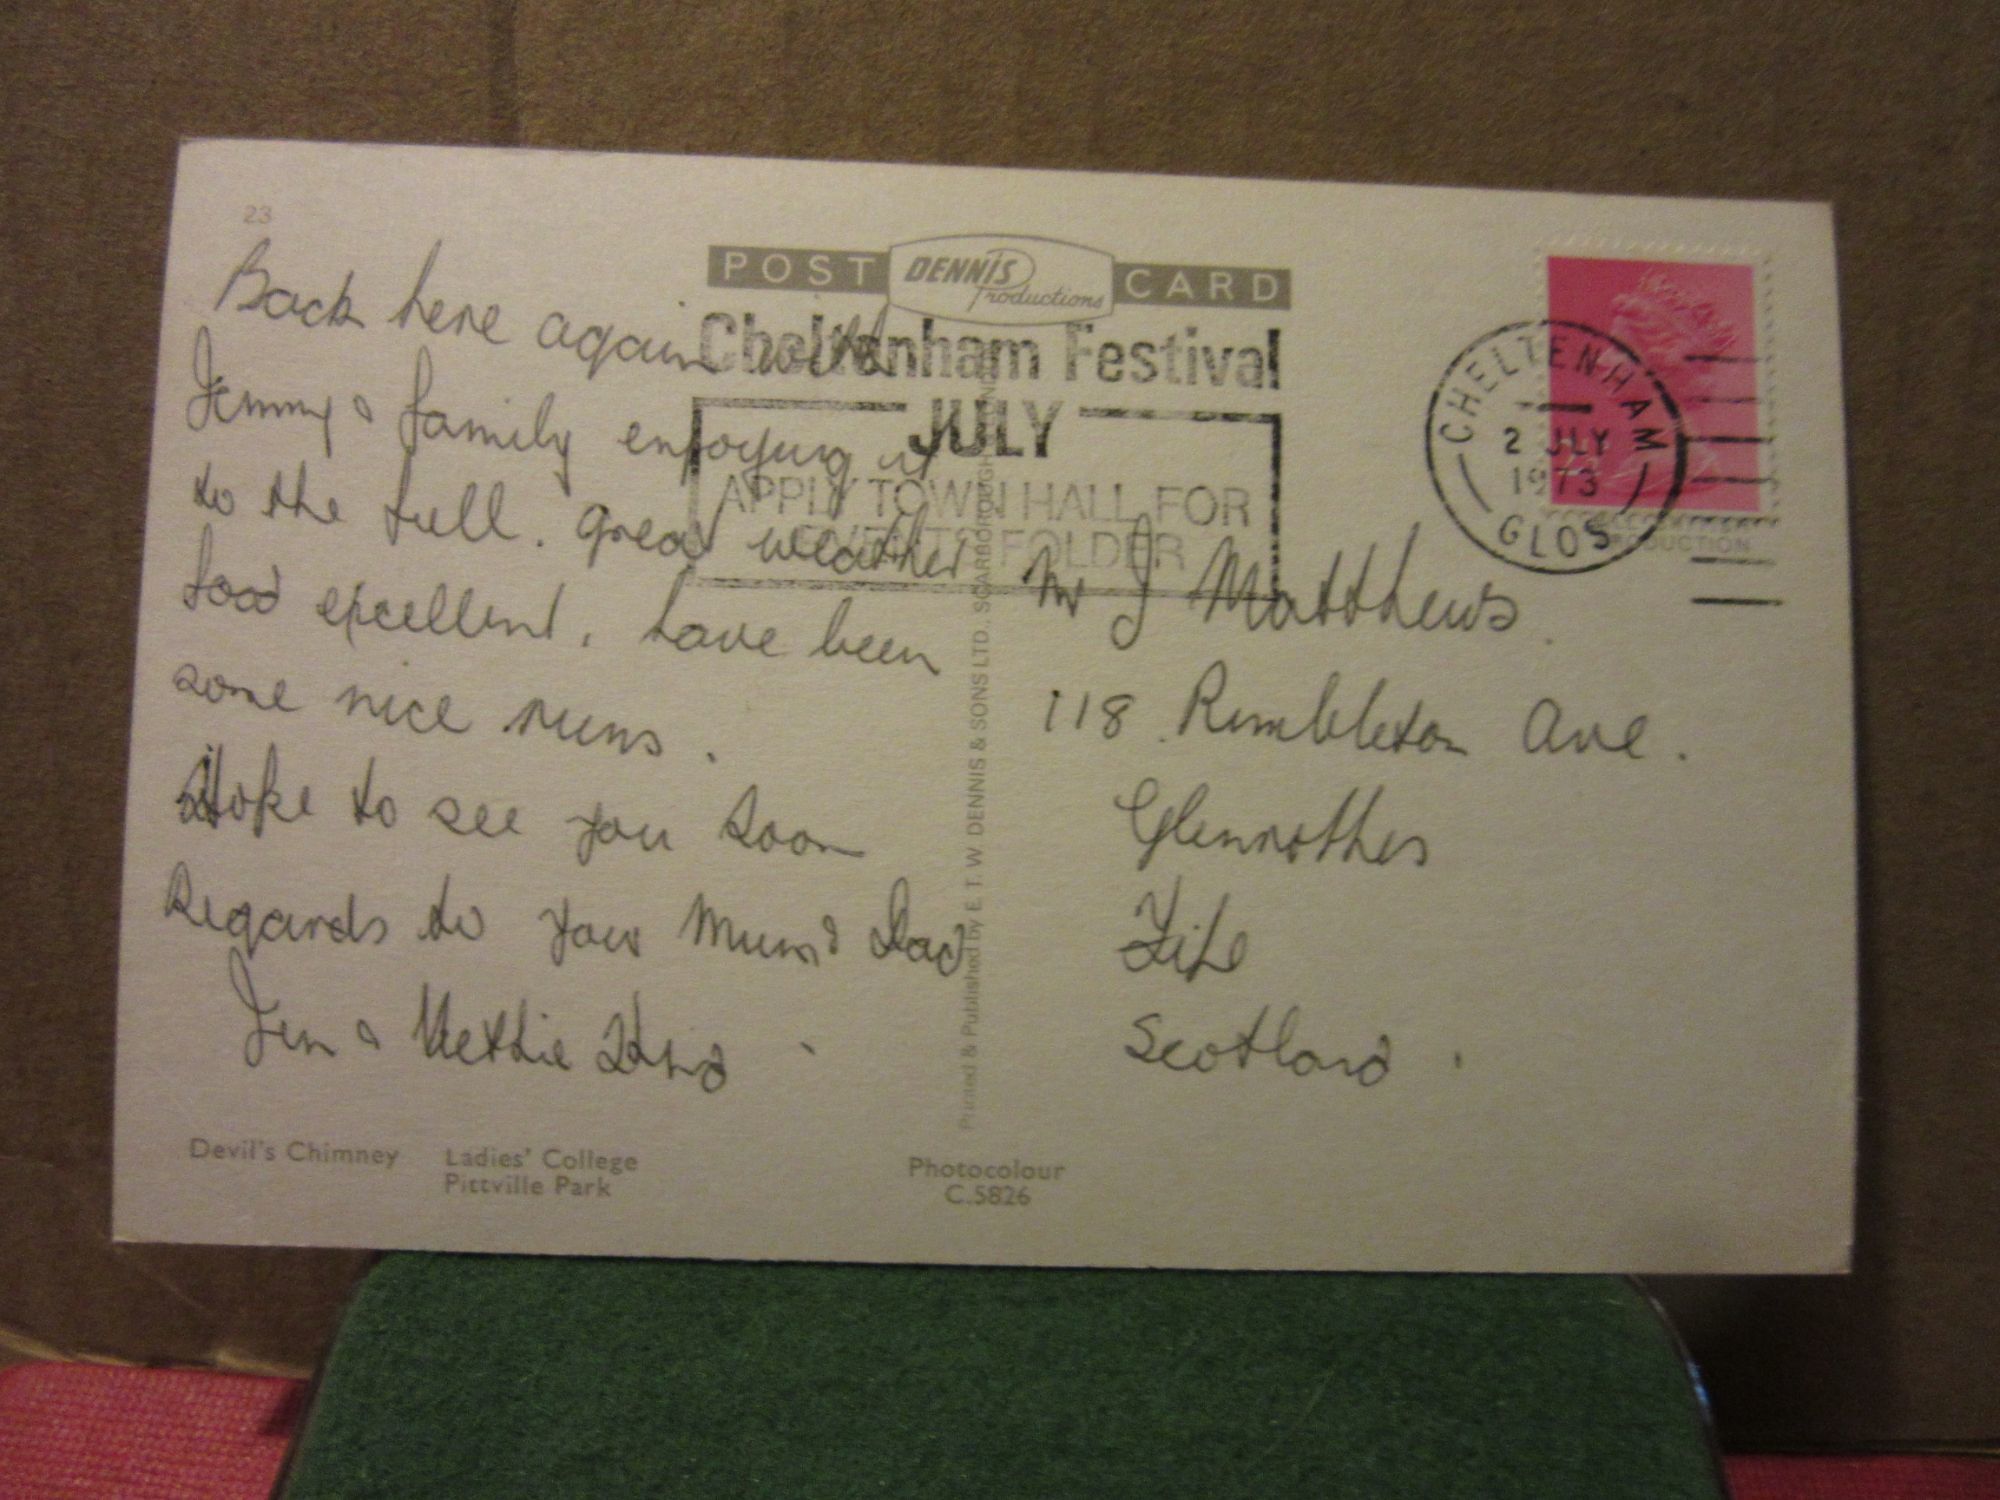 23
POST CARD
DENNIS
Productions
Cheltenham Festival
JULY
APPLY TOWN HALL FOR
EVENTS FOLDER
CHELTENHAM
2 JLY
1973
GLOS
Back here again with
Jenny & family enjoying it
to the full. Great weather
food excellent. have been
some nice runs.
Hope to see you soon
Regards to your Mum & Dad
Jim & Nettie
Mr J Matthews.
118 Rimbleton Ave.
Glenrothes
Fife
Scotland.
Printed & Published by E. T. W. DENNIS & SONS LTD., SCARBOROUGH
Devil's Chimney
Ladies' College
Pittville Park
Photocolour
C.5826